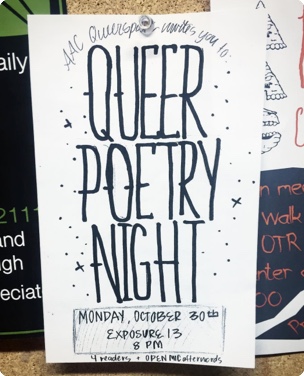 AAC Queerspace invites you to:
QUEER
POETRY
NIGHT
MONDAY, OCTOBER 30th
EXPOSURE 13
8 PM
4 readers + OPEN MIC afterwards
aily
2111
and
gh
eciat
walk
OTR